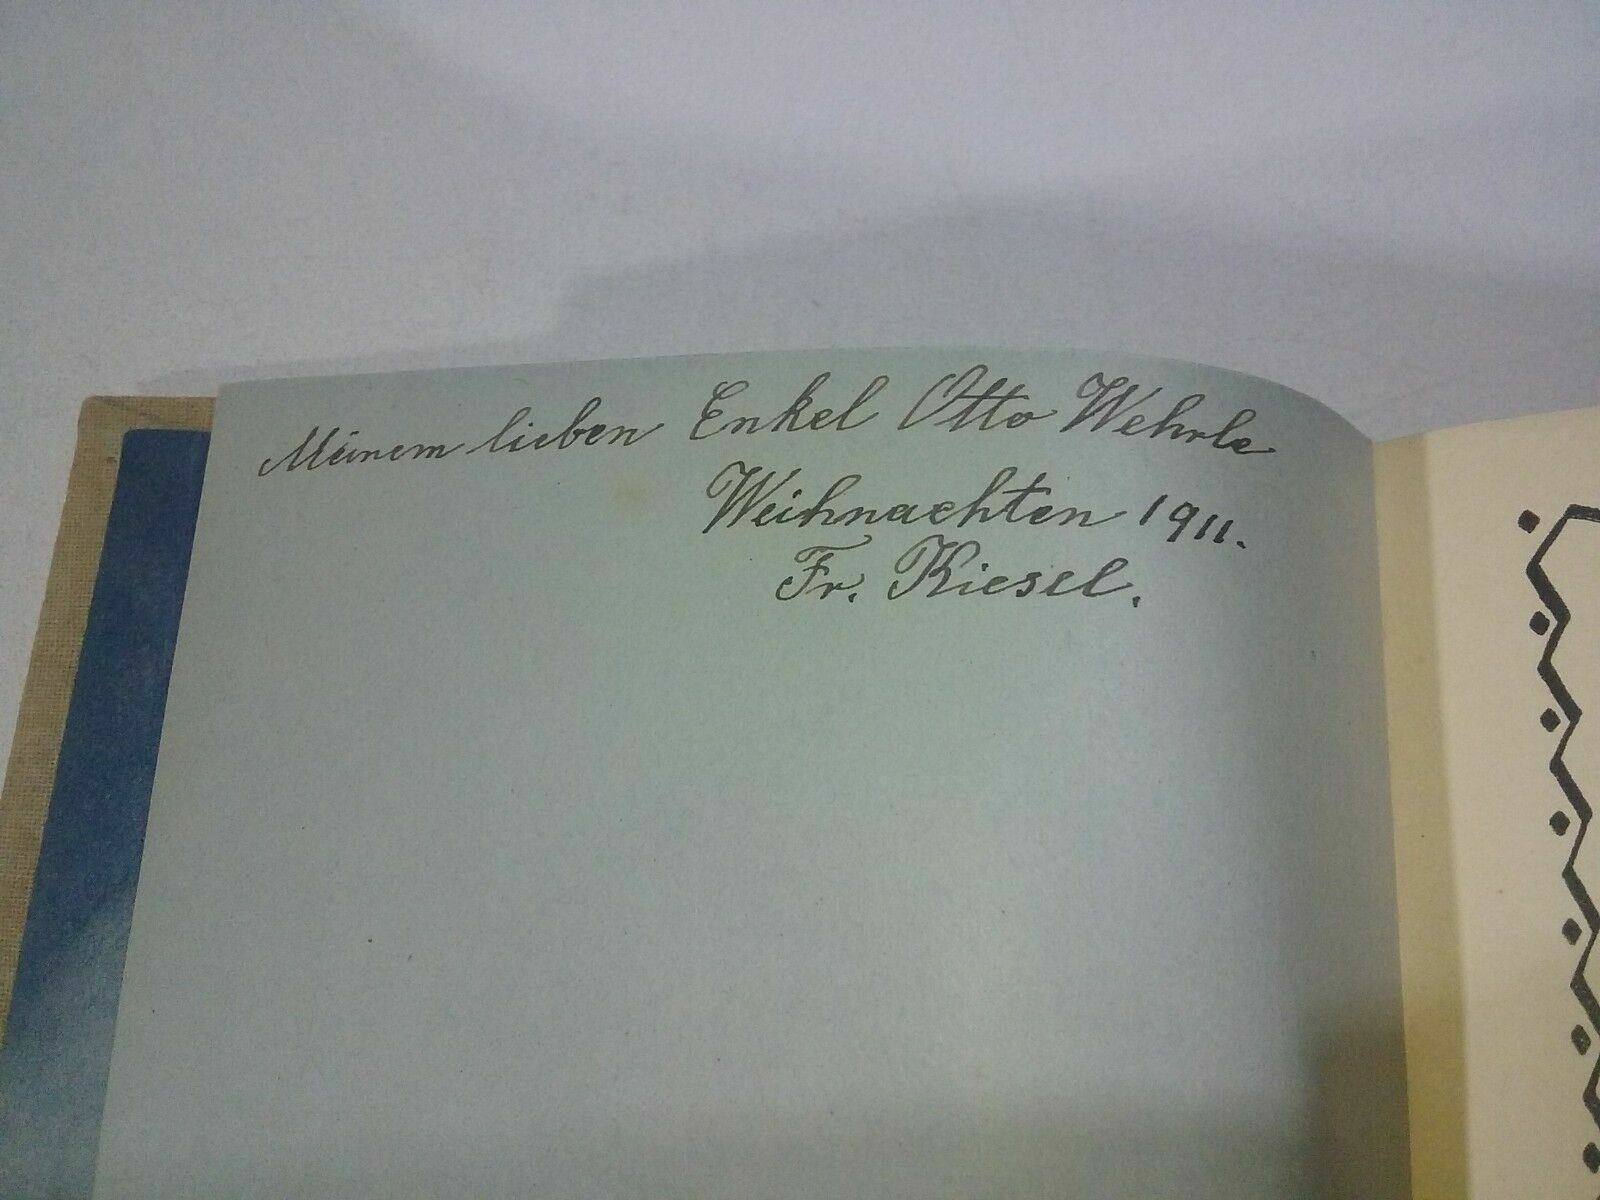 Meinem lieben Enkel Otto Wehrle
Weihnachten 1911.
Fr. Kiesel.